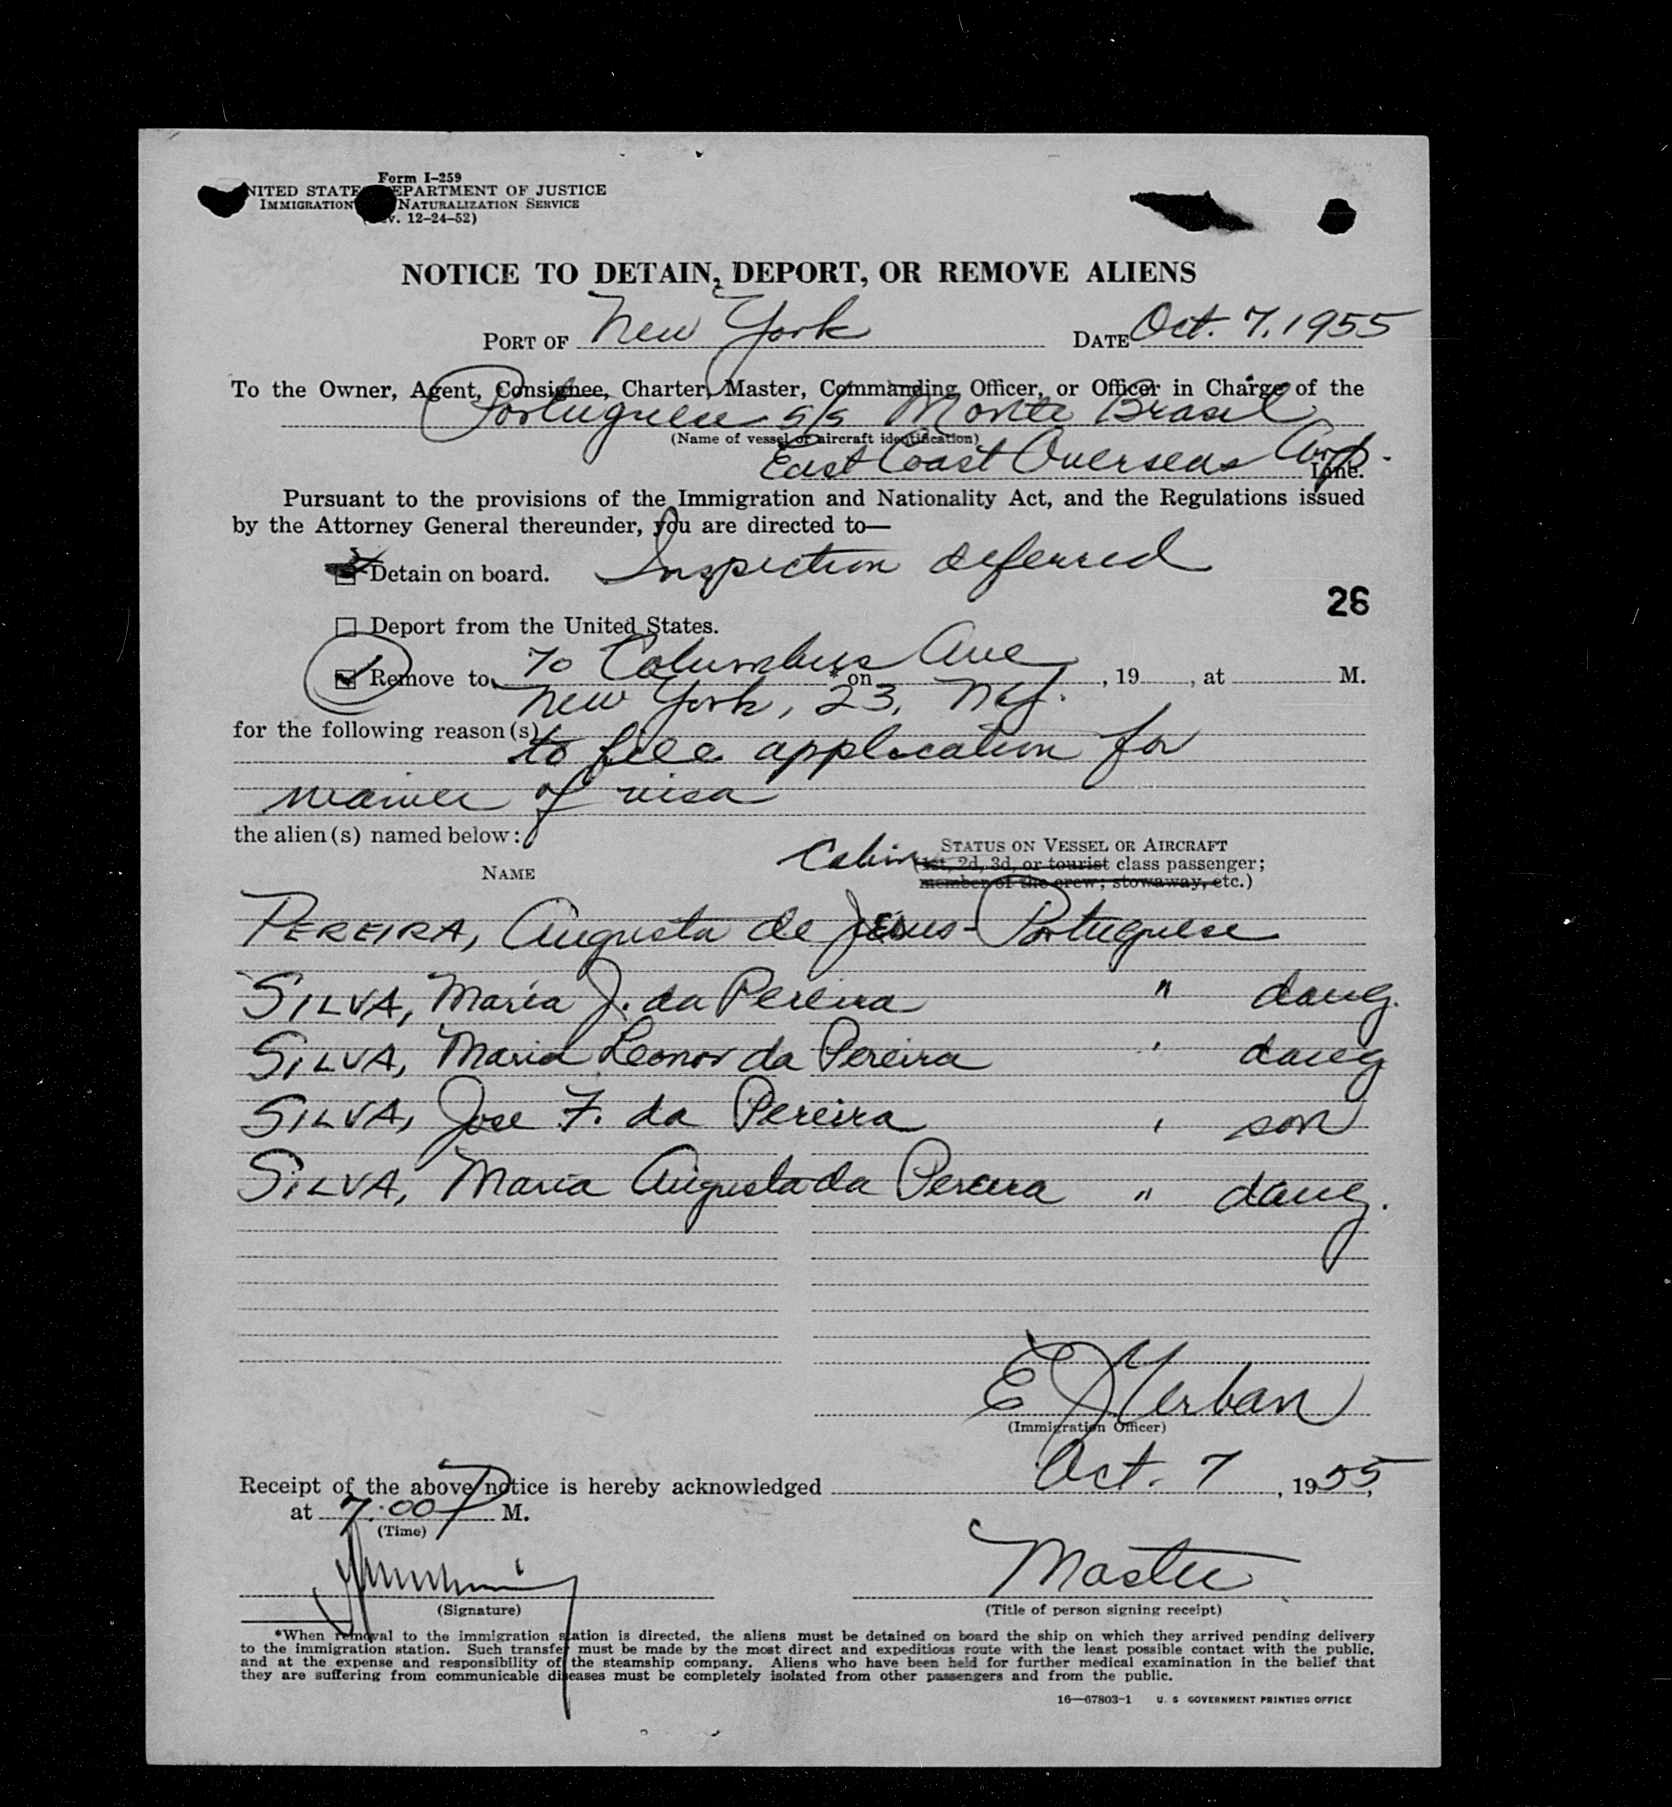 Form I-259
NITED STATE EPARTMENT OF JUSTICE
IMMIGRATION NATURALIZATION SERVICE
v. 12-24-52)
NOTICE TO DETAIN, DEPORT, OR REMOVE ALIENS
PORT OF New York DATE Oct. 7, 1955
To the Owner, Agent, Consignee, Charter, Master, Commanding Officer, or Officer in Charge of the
Portuguese S/S Monte Brasil
(Name of vessel or aircraft identification)
East Coast Overseas Corp. Line.
Pursuant to the provisions of the Immigration and Nationality Act, and the Regulations issued
by the Attorney General thereunder, you are directed to—
Detain on board. Inspection deferred
26
Deport from the United States.
Remove to 70 Columbus Ave *on , 19 , at M.
New York, 23, N.Y.
for the following reason(s)
to file application for
waiver of visa
the alien(s) named below:
NAME
STATUS ON VESSEL OR AIRCRAFT
Cabin (1st, 2d, 3d, or tourist class passenger;
member of the crew; stowaway, etc.)
PEREIRA, Augusta de Jesus - Portuguese
SILVA, Maria J. da Pereira " daug.
SILVA, Maria Leonor da Pereira ' daug
SILVA, Jose F. da Pereira ' son
SILVA, Maria Augusta da Pereira " daug.
E J Yerban
(Immigration Officer)
Receipt of the above notice is hereby acknowledged Oct. 7, 1955,
at 7:00 P M.
(Time)
Master
(Signature) (Title of person signing receipt)
*When removal to the immigration station is directed, the aliens must be detained on board the ship on which they arrived pending delivery
to the immigration station. Such transfer must be made by the most direct and expeditious route with the least possible contact with the public,
and at the expense and responsibility of the steamship company. Aliens who have been held for further medical examination in the belief that
they are suffering from communicable diseases must be completely isolated from other passengers and from the public.
16—67803-1 U. S GOVERNMENT PRINTING OFFICE